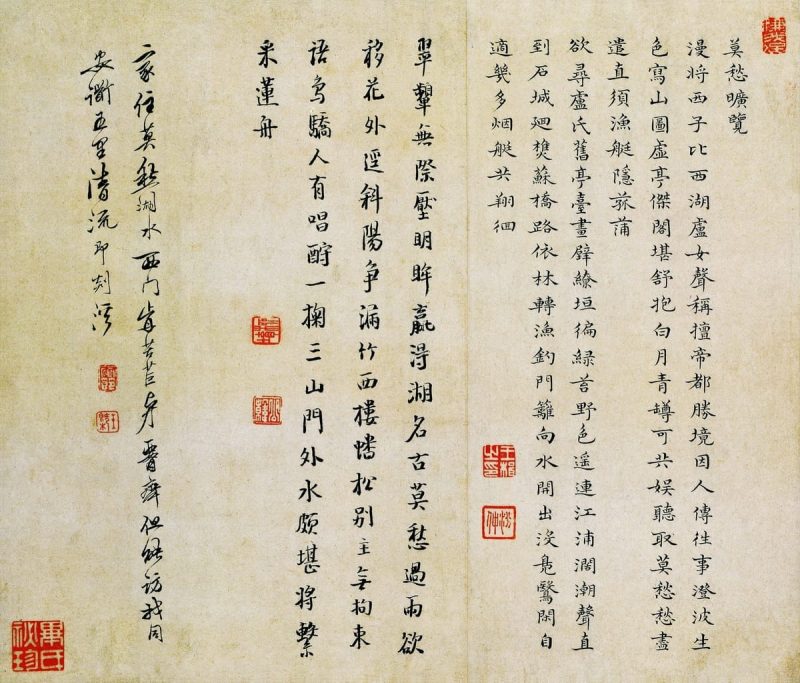 莫愁曠覽
漫將西子比西湖盧女聲稱擅帝都勝境因人傳往事澄波生
色寫山圖虛亭傑閣堪舒抱白月青罇可共娱聽取莫愁愁盡
遣直須漁艇隱菰蒲
欲尋盧氏舊亭臺畫壁繚垣徧綠苔野色遥連江浦濶潮聲直
到石城廻樊蘇橋路依林轉漁釣門籬向水開出没鳧鷖閑自
適幾多烟艇共翔徊
翠鞶無際壓明眸贏得湖名古莫愁過雨欲
移花外逕斜陽争滿竹西樓幡松别主無拘束
語鳥驕人有唱酧一掬三山門外水頗堪將繫
采蓮舟
家住莫愁湖水西門
但能訪我同
五里清流即剡溪